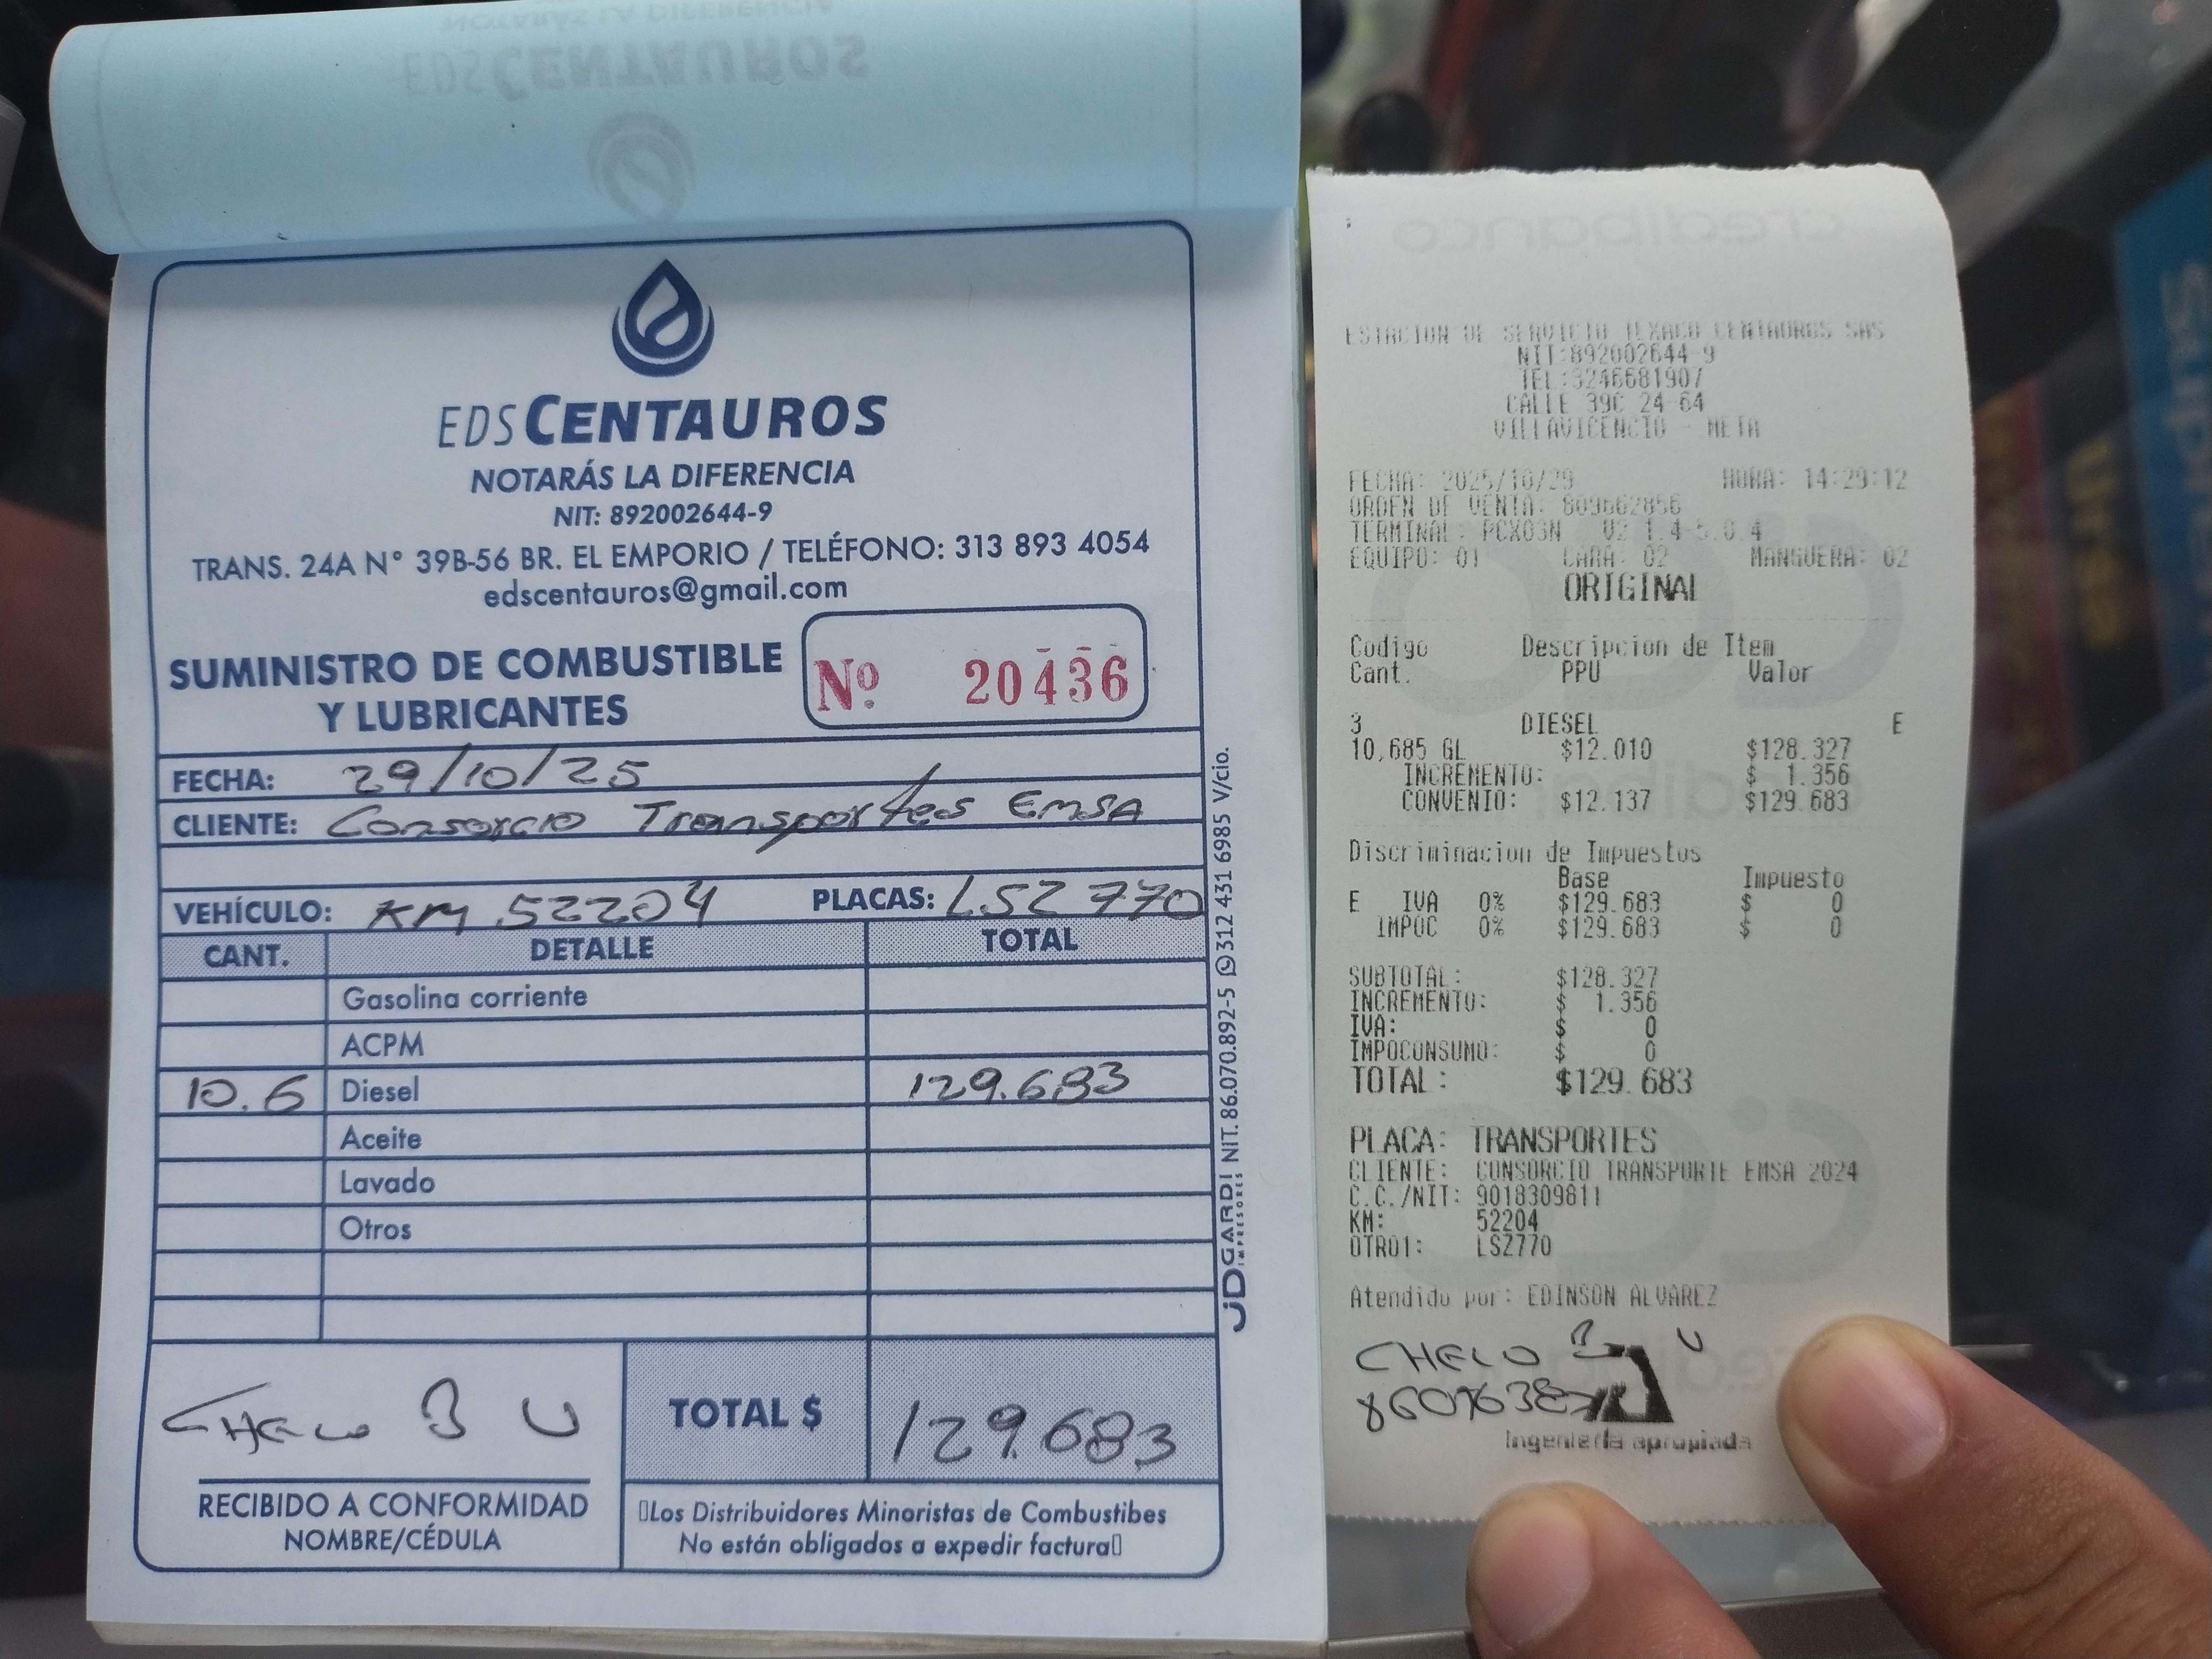 EDS CENTAUROS
NOTARÁS LA DIFERENCIA
NIT: 892002644-9
TRANS. 24A N° 39B-56 BR. EL EMPORIO / TELÉFONO: 313 893 4054
edscentauros@gmail.com
SUMINISTRO DE COMBUSTIBLE
Y LUBRICANTES
Nº 20436
FECHA: 29/10/25
CLIENTE: Consorcio Transportes EMSA
VEHÍCULO: KM 52204 PLACAS: LSZ 770
CANT. DETALLE TOTAL
Gasolina corriente
ACPM
10.6 Diesel 129.683
Aceite
Lavado
Otros
CHELO B U
RECIBIDO A CONFORMIDAD
NOMBRE/CÉDULA
TOTAL $ 129.683
Los Distribuidores Minoristas de Combustibes
No están obligados a expedir factura
JD GARDI IMPRESORES NIT. 86.070.892-5 312 431 6985 V/cio.
credibanco
ESTACION DE SERVICIO TEXACO CENTAUROS SAS
NIT:892002644-9
TEL:3246681907
CALLE 39C 24-64
VILLAVICENCIO - META
FECHA: 2025/10/29 HORA: 14:29:12
ORDEN DE VENTA: 809602856
TERMINAL: PCX03N V2.1.4-5.0.4
EQUIPO: 01 CARA: 02 MANGUERA: 02
ORIGINAL
Codigo Descripcion de Item
Cant. PPU Valor
3 DIESEL E
10,685 GL $12.010 $128.327
INCREMENTO: $ 1.356
CONVENIO: $12.137 $129.683
Discriminacion de Impuestos
Base Impuesto
E IVA 0% $129.683 $ 0
IMPOC 0% $129.683 $ 0
SUBTOTAL: $128.327
INCREMENTO: $ 1.356
IVA: $ 0
IMPOCONSUMO: $ 0
TOTAL: $129.683
PLACA: TRANSPORTES
CLIENTE: CONSORCIO TRANSPORTE EMSA 2024
C.C./NIT: 9018309811
KM: 52204
OTRO1: LSZ770
Atendido por: EDINSON ALVAREZ
CHELO B U
Ingeniería apropiada